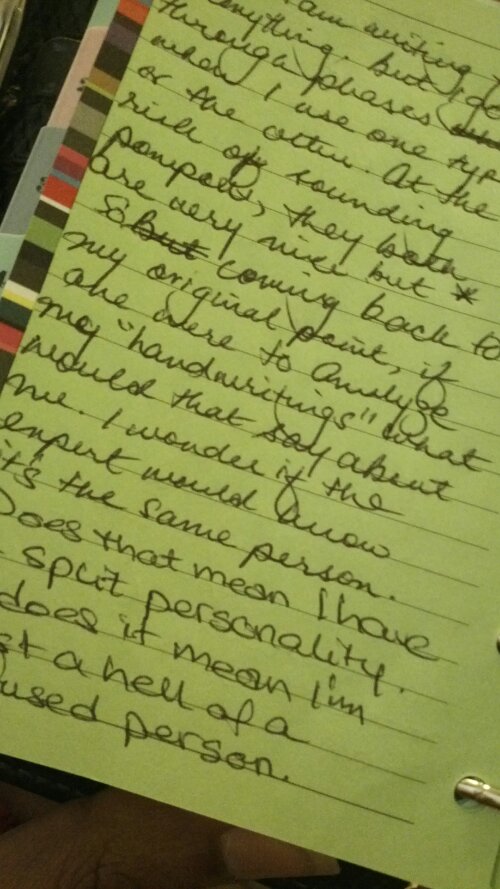 am writing
anything. but I go
through phases
when I use one typ
or the other. At the
risk of sounding
pompous, they both
are very nice but *
So but coming back to
my original point, if
one were to analyze
my "handwritings" what
would that say about
me. I wonder if the
expert would know
it's the same person.
Does that mean I have
split personality.
does it mean I'm
st a hell of a
used person.